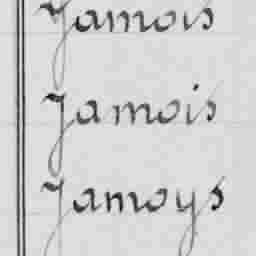 Jamois
Jamois
Jamoys